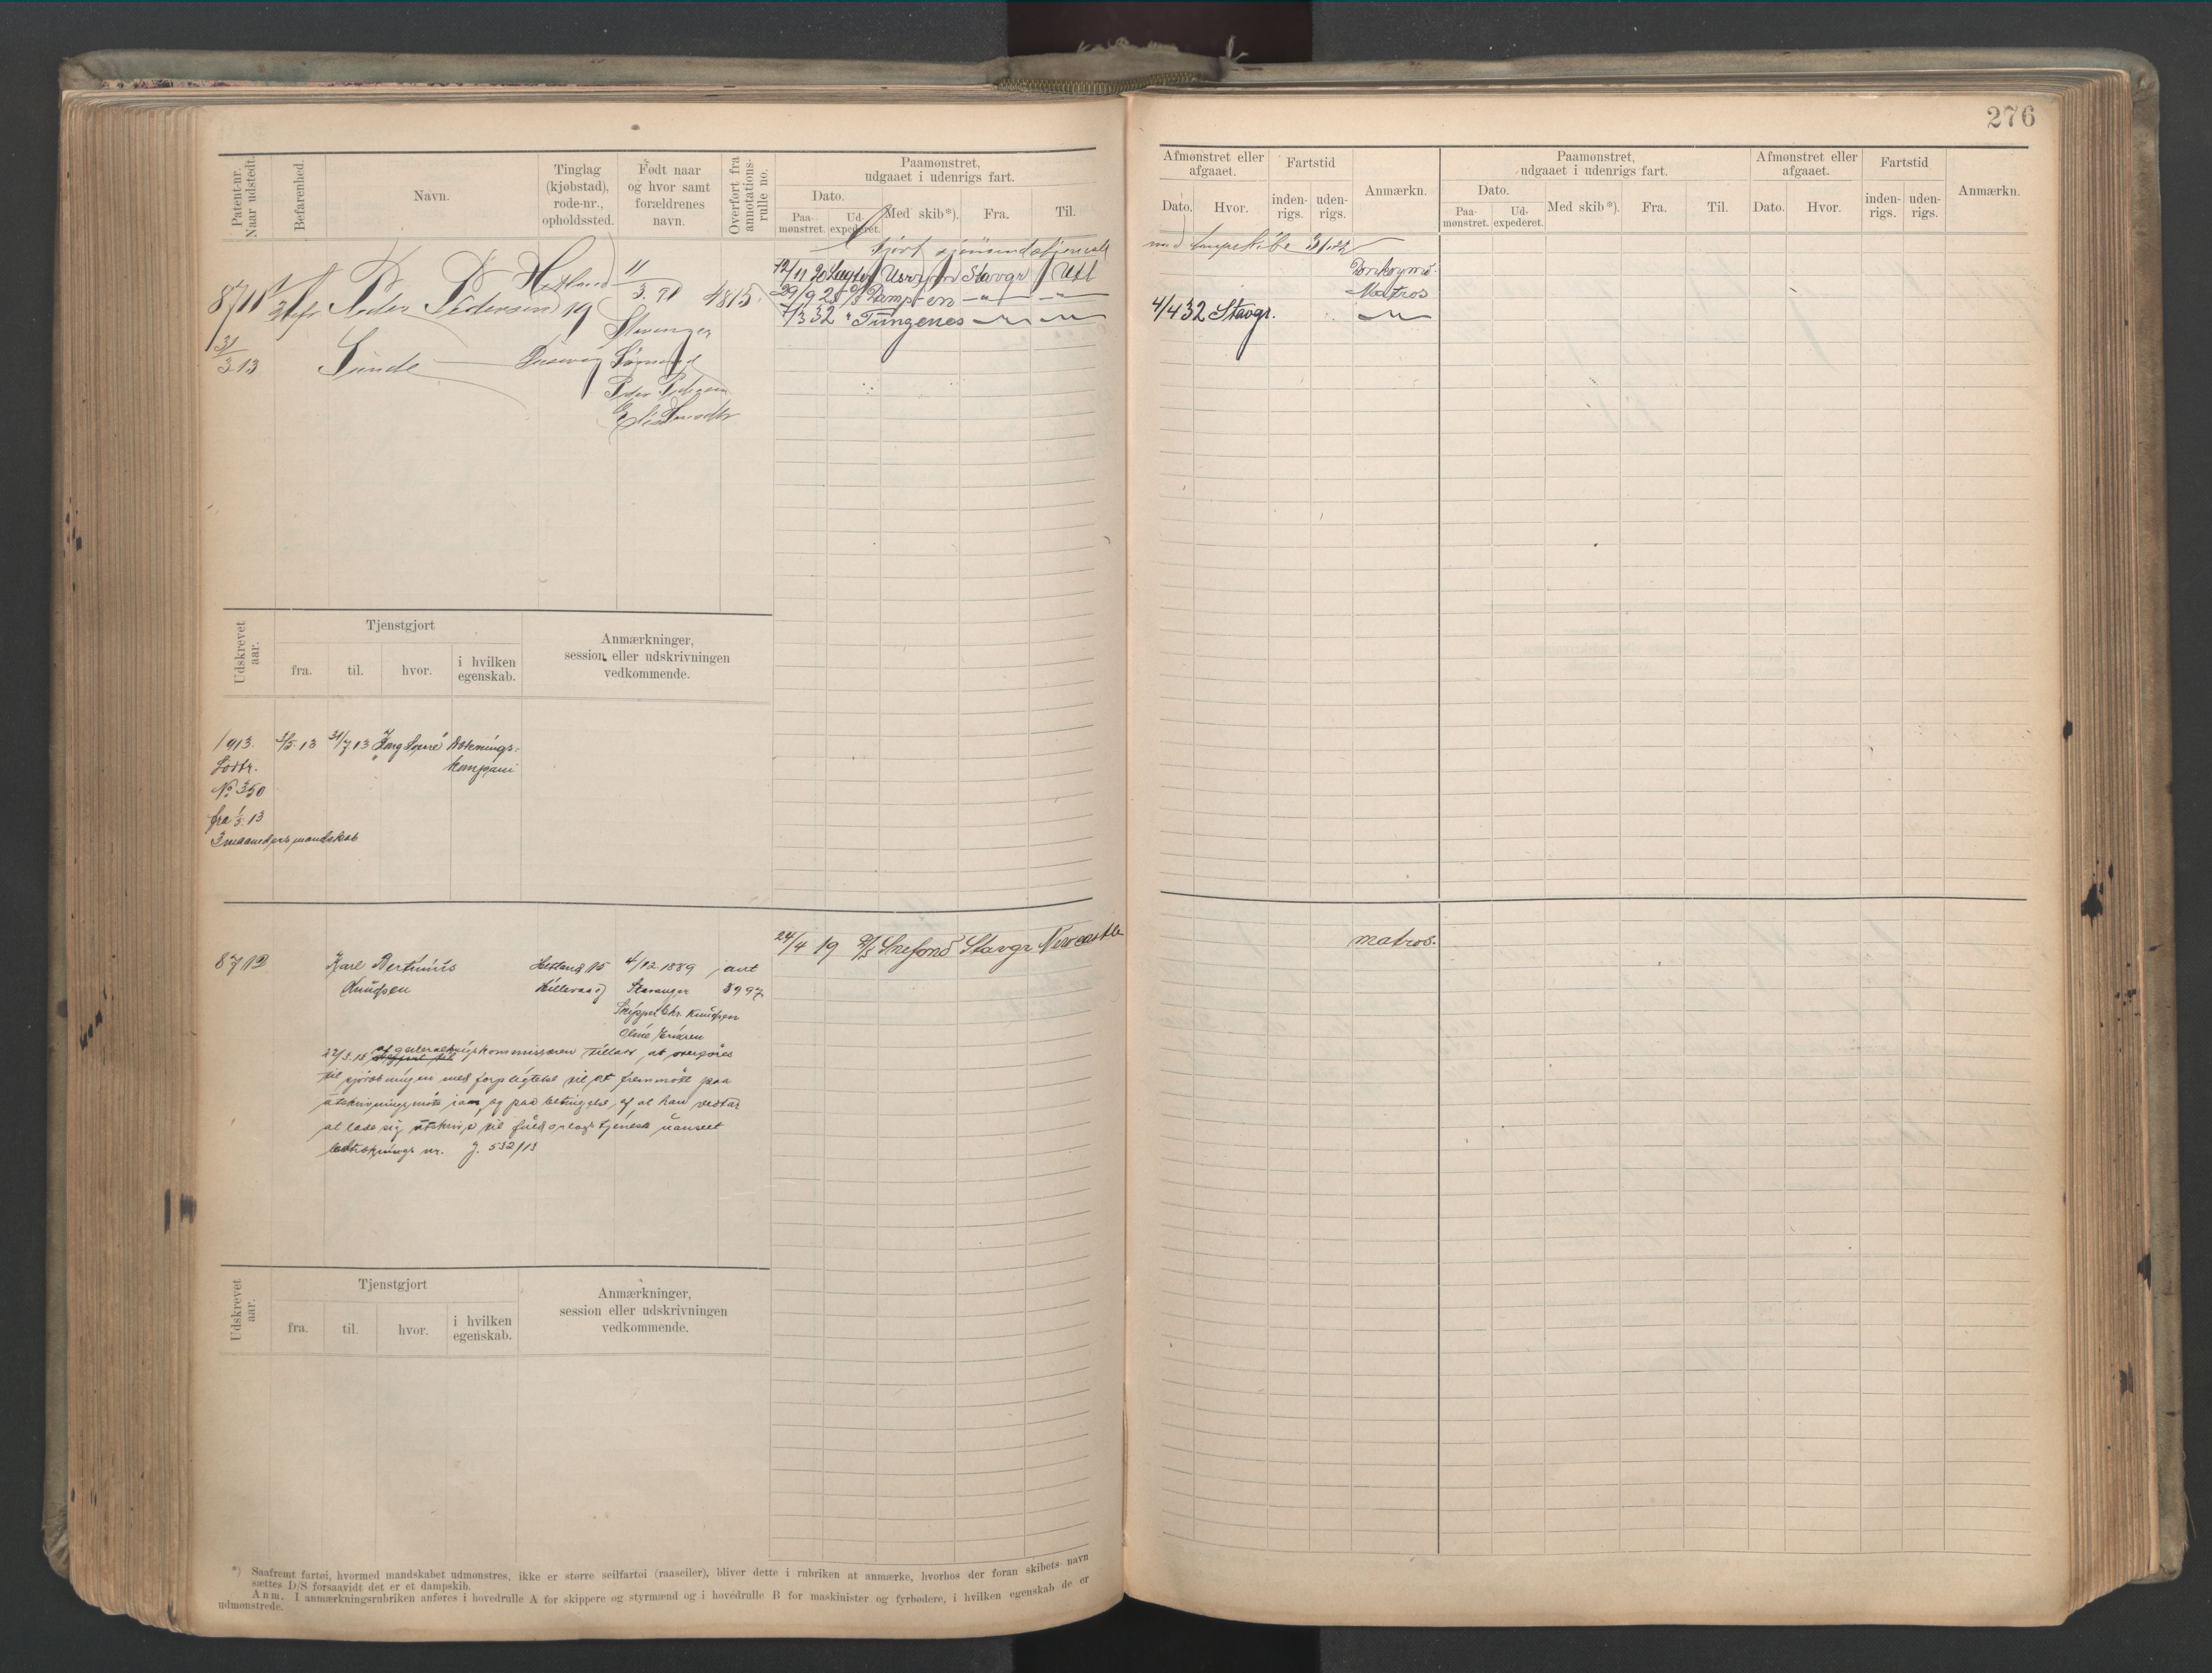 276
Patent-nr. Naar udstedt.
Befarenhed.
Navn.
Tinglag (kjøbstad), rode-nr., opholdssted.
Født naar og hvor samt forældrenes navn.
Overført fra annotations-rulle no.
Paamønstret, udgaaet i udenrigs fart.
Dato.
Paa-mønstret.
Ud-expederet.
Med skib*).
Fra.
Til.
Afmønstret eller afgaaet.
Dato.
Hvor.
Fartstid
inden-rigs.
uden-rigs.
Anmærkn.
Paamønstret, udgaaet i udenrigs fart.
Dato.
Paa-mønstret.
Ud-expederet.
Med skib*).
Fra.
Til.
Afmønstret eller afgaaet.
Dato.
Hvor.
Fartstid
inden-rigs.
uden-rigs.
Anmærkn.
8711
Peder Pedersen
Hetland 19
11/3. 91
4815
31/3 13
Sunde
Stavanger
Peder Pedersen
gjort sjømandstjeneste
12/11 20
Stavgr
Utl
29/9 2
Matros
7/3 32 " Tungenes
4/4 32 Stavgr.
Udskrevet aar.
Tjenstgjort
fra.
til.
hvor.
i hvilken egenskab.
Anmærkninger, session eller udskrivningen vedkommende.
1913.
31/7 13
kompani
Lodtr.
No 350
fra 1/5 13
3 maaneders mandskab
8712
Karl Bertinius
Hetland 15
4/12 1889
Knudsen
Hillevaag
Stavanger
3997
Skipper Chr. Knudsen
24/4 19 D/S Snefond Stavgr Newcastle
matros.
generalkrigskommissæren tillatt, at overføres
til sjørulningen med forpligtelse til at fremmøte paa
utskrivningsmøte iaar, og paa betingelse af at han vedtar
at lade sig utskrive til tjeneste uanseet
lodtræknings nr. J. 532/13
Udskrevet aar.
Tjenstgjort
fra.
til.
hvor.
i hvilken egenskab.
Anmærkninger, session eller udskrivningen vedkommende.
*) Saafremt fartøi, hvormed mandskabet udmønstres, ikke er større seilfartøi (raaseiler), bliver dette i rubriken at anmærke, hvorhos der foran skibets navn
sættes D/S forsaavidt det er et dampskib.
Anm. I anmærkningsrubriken anføres i hovedrulle A for skippere og styrmænd og i hovedrulle B for maskinister og fyrbødere, i hvilken egenskab de er
udmønstrede.